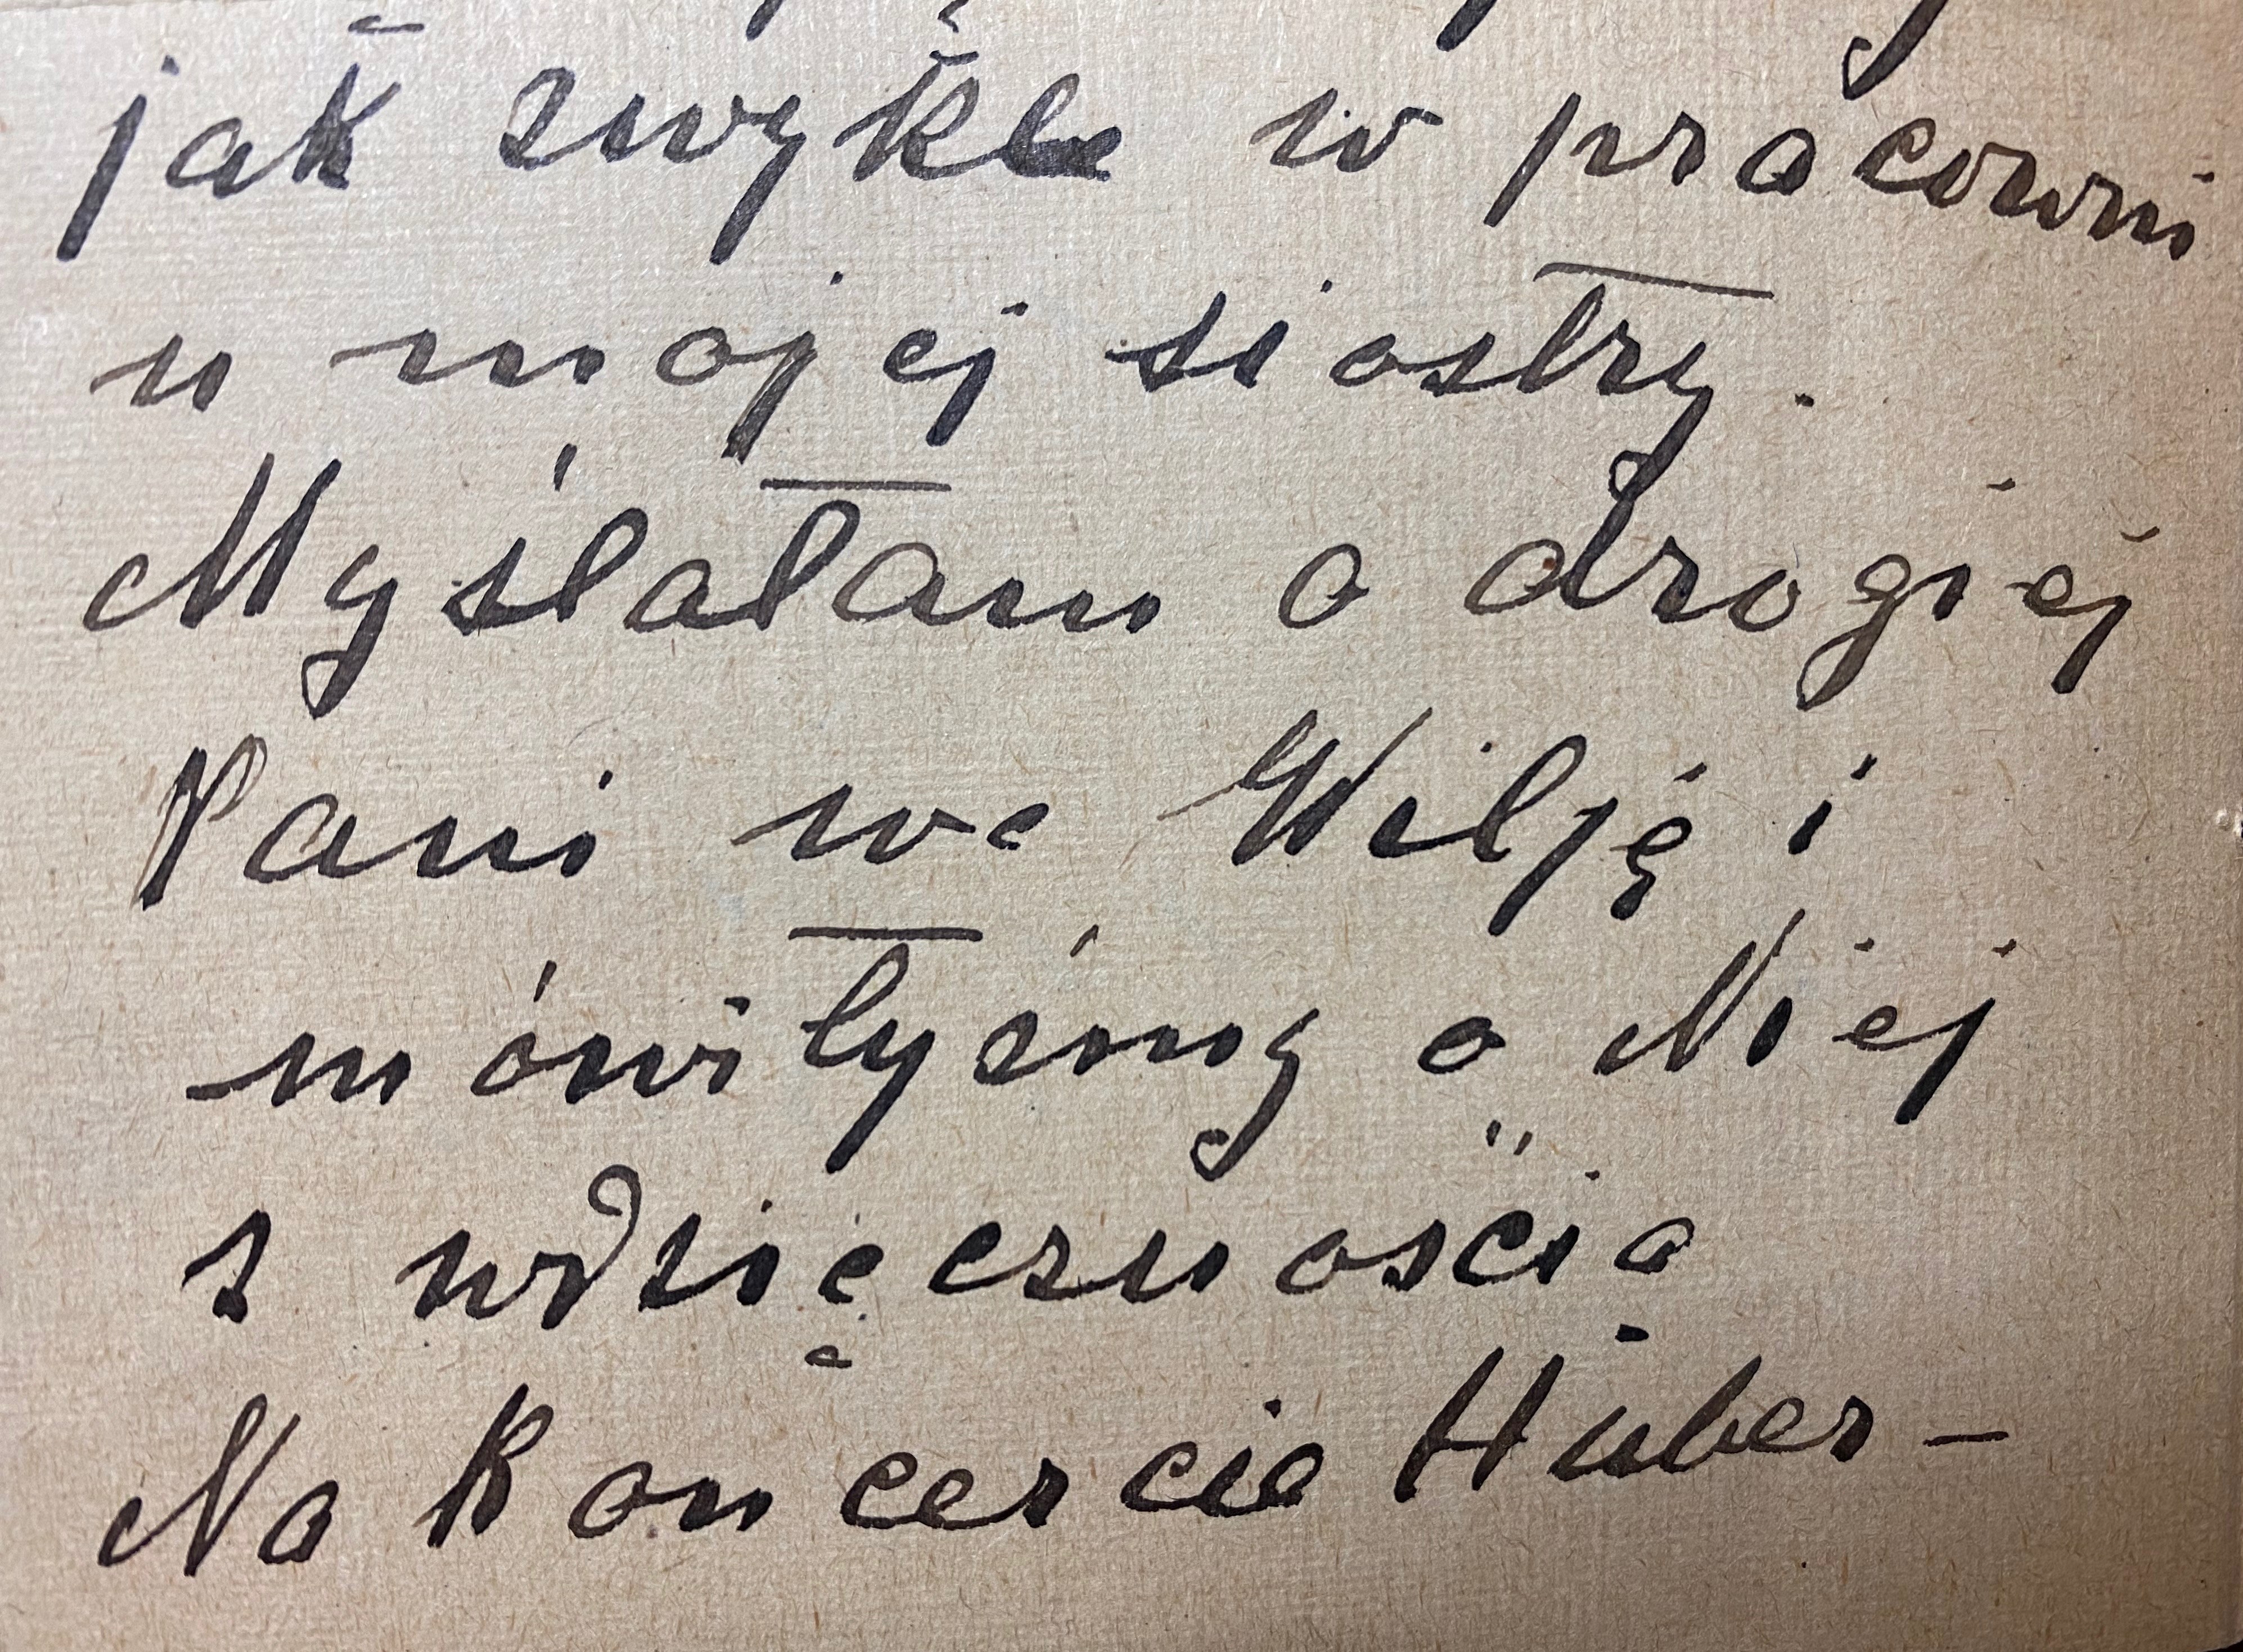 jak zwykle w pracowni
u mojej siostry.
Myślałam o drogiej
Pani we Wilję i
mówiłyśmy o Niej
z wdzięcznością
Na koncercie Huber-